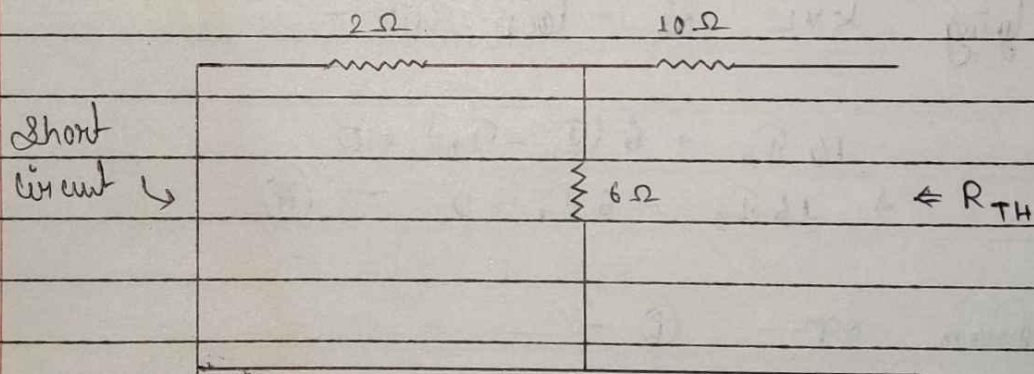 2 Ω 10 Ω
Short
circuit ↳
6 Ω ⇐ R_TH